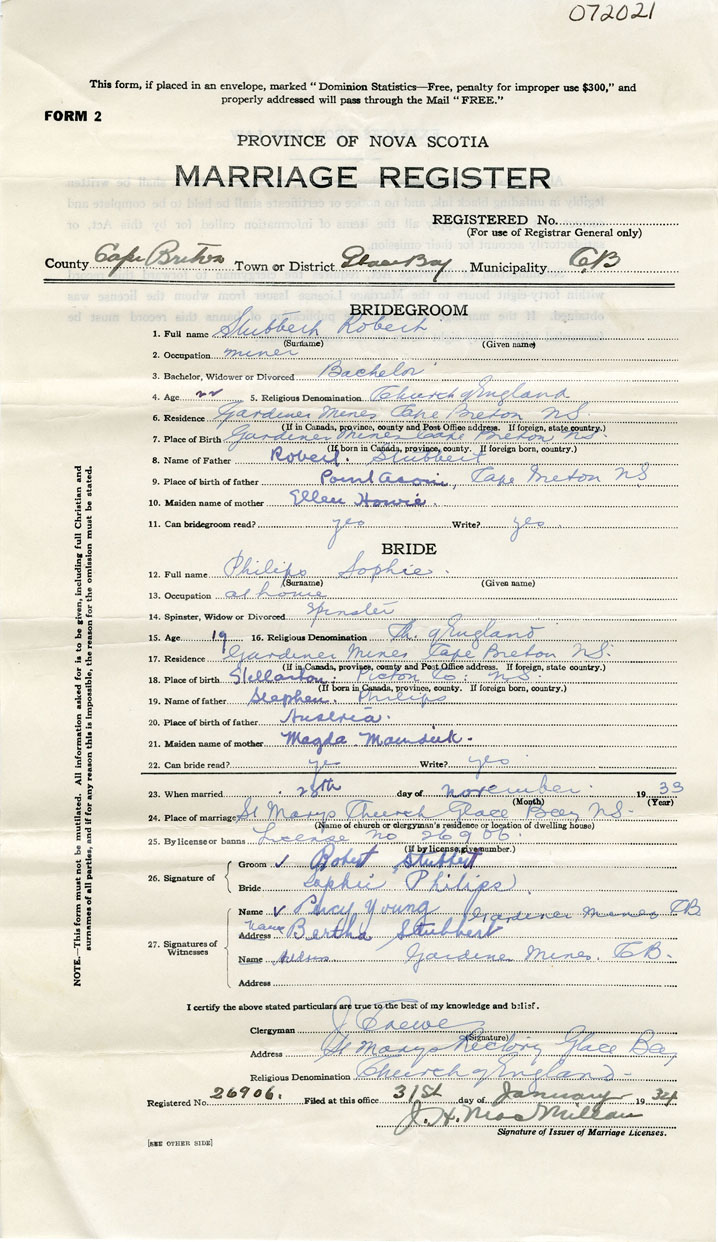 072021
This form, if placed in an envelope, marked "Dominion Statistics—Free, penalty for improper use $300," and
properly addressed will pass through the Mail "FREE."
FORM 2
PROVINCE OF NOVA SCOTIA
MARRIAGE REGISTER
REGISTERED No.
(For use of Registrar General only)
County Cape Breton Town or District Glace Bay Municipality C.B
BRIDEGROOM
1. Full name Stubbert Robert
(Surname) (Given name)
2. Occupation miner
3. Bachelor, Widower or Divorced Bachelor
4. Age 22 5. Religious Denomination Church of England
6. Residence Gardiner Mines Cape Breton NS.
(If in Canada, province, county and Post Office address. If foreign, state country.)
7. Place of Birth Gardiner Mines Cape Breton NS.
(If born in Canada, province, county. If foreign born, country.)
8. Name of Father Robert. Stubbert
9. Place of birth of father Point Aconi, Cape Breton NS
10. Maiden name of mother Ellen Howie.
11. Can bridegroom read? yes Write? yes.
BRIDE
12. Full name Philips Sophie.
(Surname) (Given name)
13. Occupation at home
14. Spinster, Widow or Divorced Spinster
15. Age 19 16. Religious Denomination Ch. of England
17. Residence Gardiner Mines Cape Breton NS.
(If in Canada, province, county and Post Office address. If foreign, state country.)
18. Place of birth Stellarton. Picton Co: NS.
(If born in Canada, province, county. If foreign born, country.)
19. Name of father Stephen. Philips
20. Place of birth of father Austria.
21. Maiden name of mother Magda
22. Can bride read? yes Write? yes
23. When married 28th day of November. 1933
(Month) (Year)
24. Place of marriage St Marys Church Glace Bay NS-
(Name of church or clergyman's residence or location of dwelling house)
25. By license or banns License no 26906.
(If by license, give number.)
26. Signature of
Groom ✓ Robert Stubbert
Bride Sophie Philips
27. Signatures of Witnesses
Name ✓ Percy Young Gardiner Mines CB
Address Name Bertha Stubbert
Name Address Gardiner Mines. CB.
Address
I certify the above stated particulars are true to the best of my knowledge and belief.
Clergyman J
(Signature)
Address St Marys Rectory Glace Bay
Religious Denomination Church of England-
Registered No. 26906. Filed at this office 31st day of January 1934
J. H. MacMillan
Signature of Issuer of Marriage Licenses.
[SEE OTHER SIDE]
NOTE.—This form must not be mutilated. All information asked for is to be given, including full Christian and
surnames of all parties, and if for any reason this is impossible, the reason for the omission must be stated.